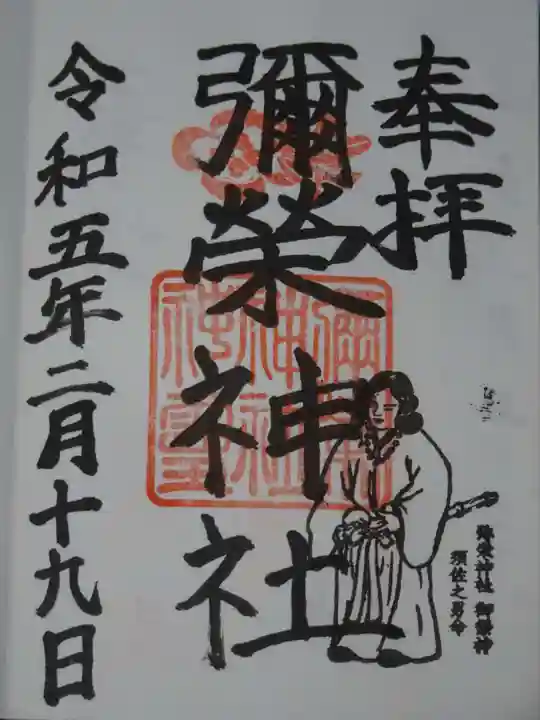 奉拝
彌榮神社
令和五年二月十九日
弥栄神社 御祭神
須佐之男命